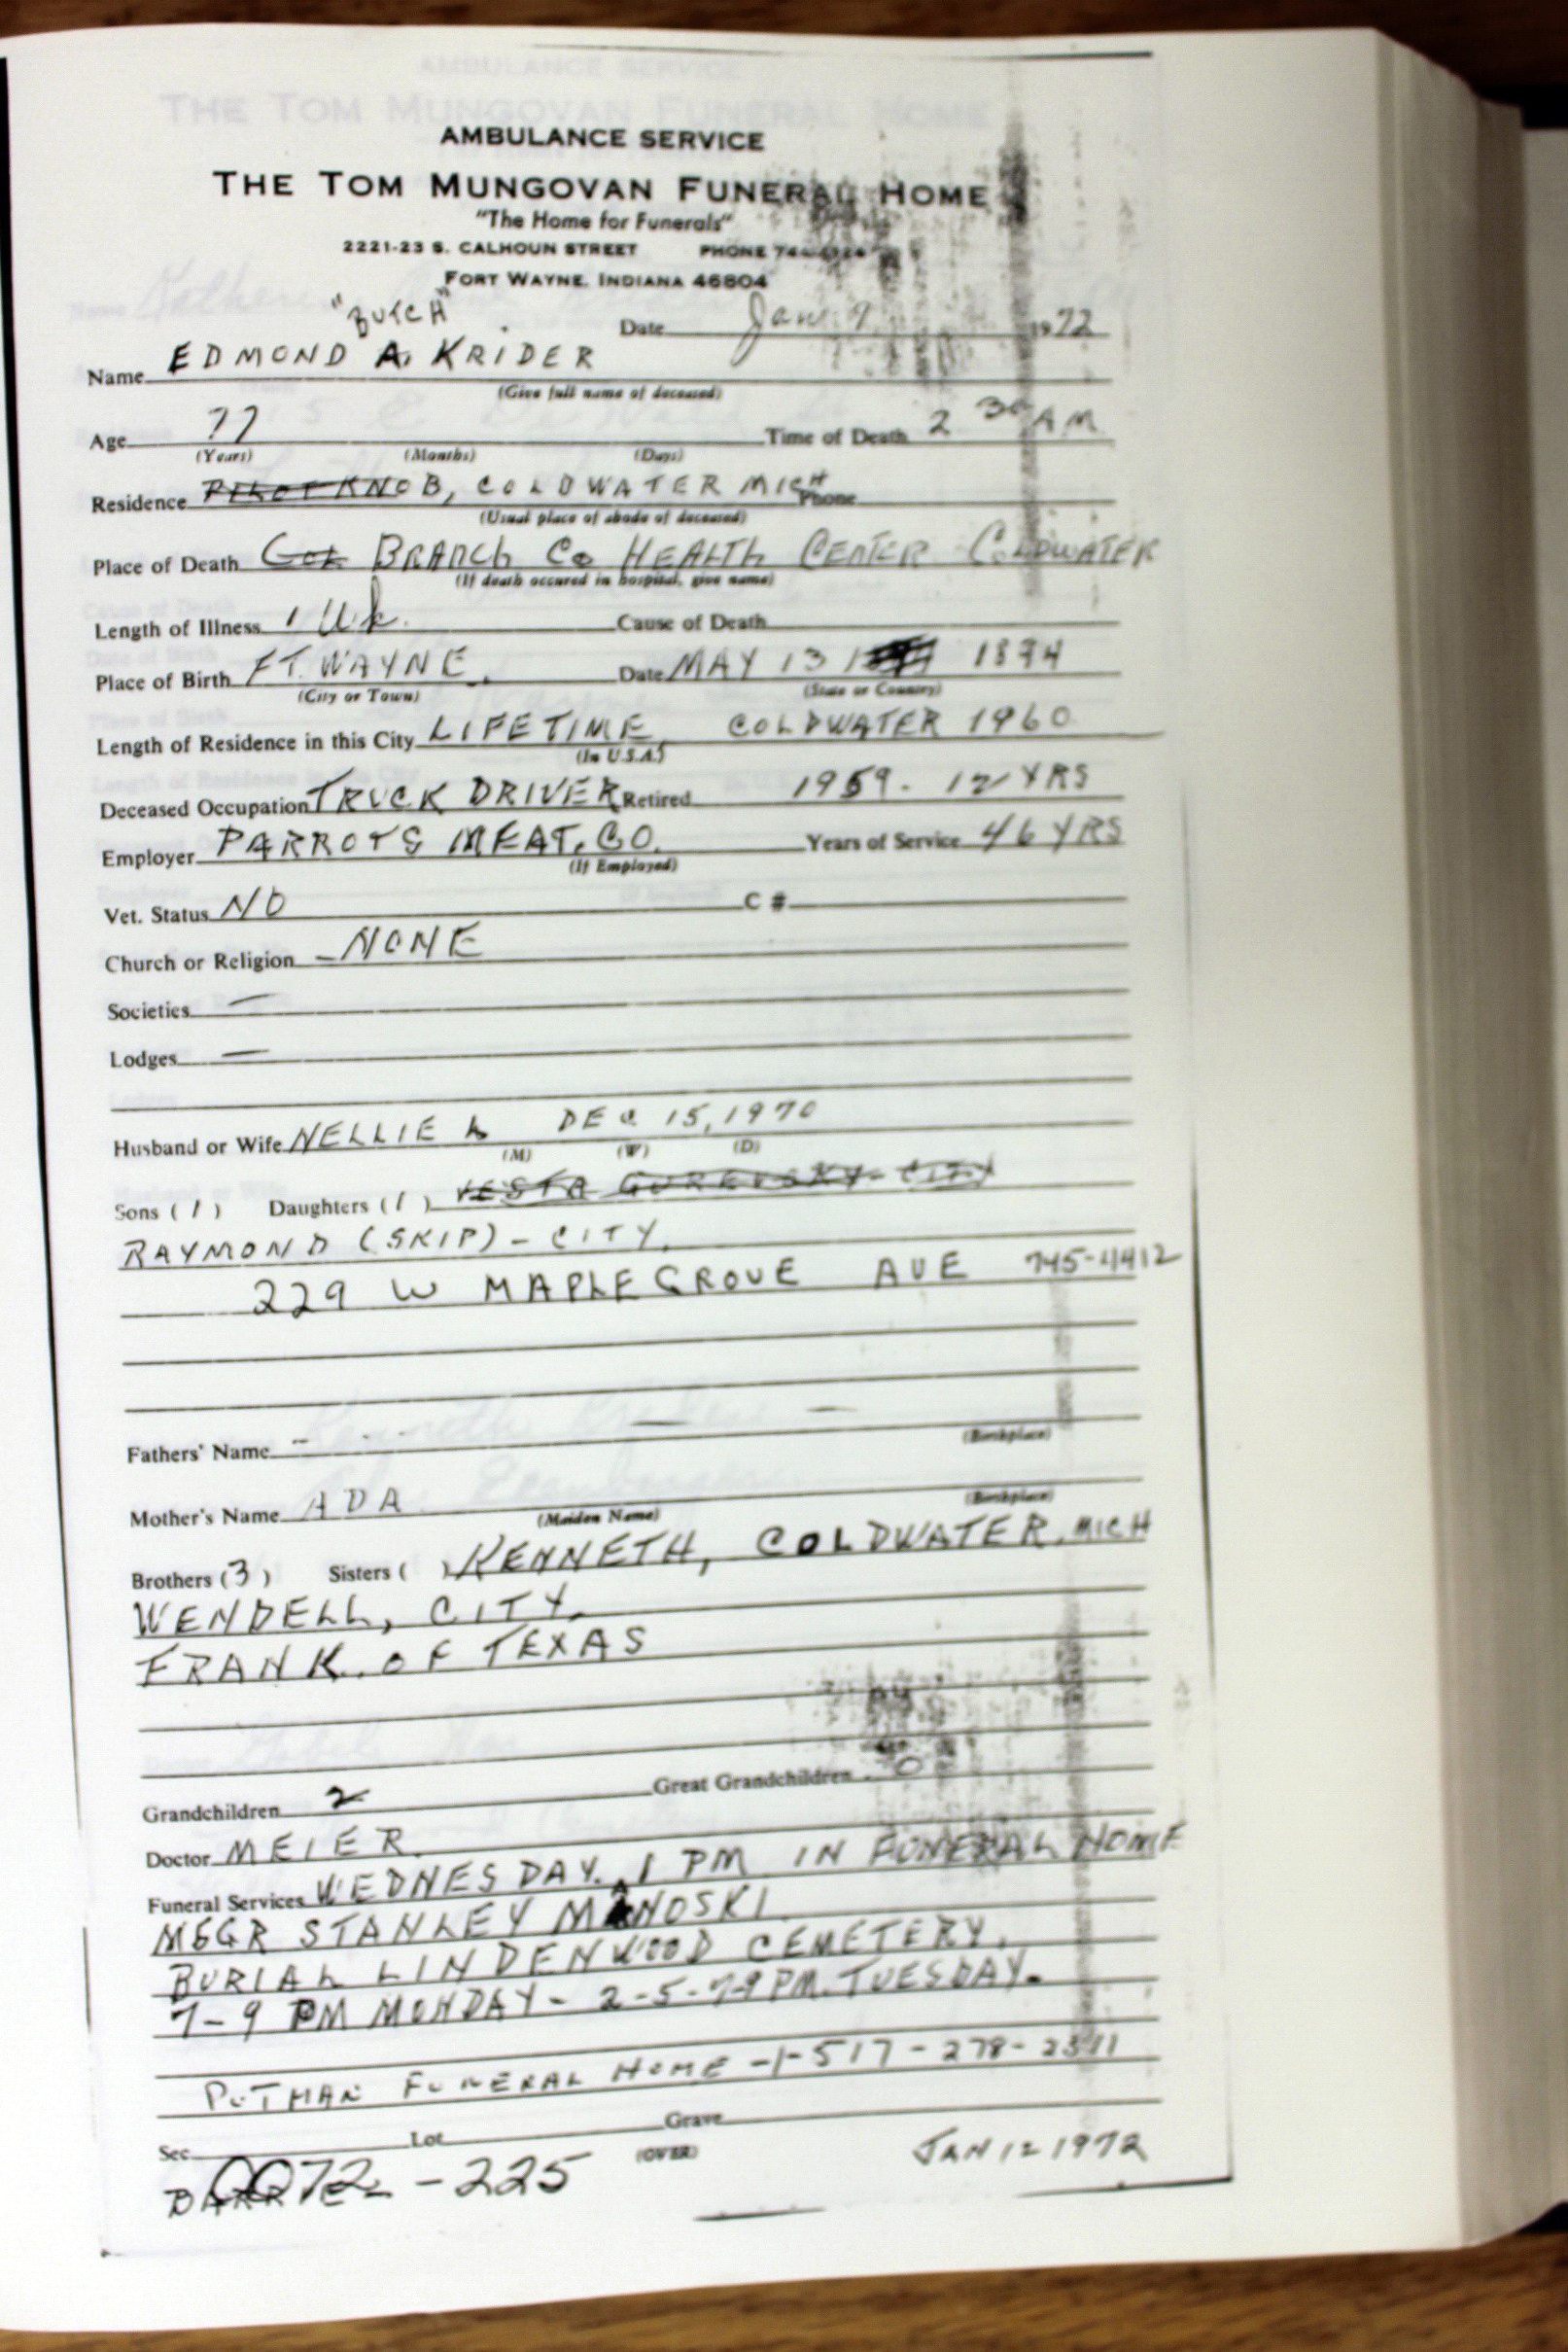 AMBULANCE SERVICE
THE TOM MUNGOVAN FUNERAL HOME
"The Home for Funerals"
2221-23 S. CALHOUN STREET PHONE
FORT WAYNE, INDIANA 46804
"BUTCH"
Date Jan. 9 1972
Name EDMOND A. KRIDER
(Give full name of deceased)
Age 77 Time of Death 2 30 AM
(Years) (Months) (Days)
Residence PILOT KNOB, COLDWATER MICH Phone
(Usual place of abode of deceased)
Place of Death Col BRANCH Co HEALTH CENTER COLDWATER
(If death occured in hospital, give name)
Length of Illness 1 Wk. Cause of Death
Place of Birth FT. WAYNE. Date MAY 13 1894
(City or Town) (State or Country)
Length of Residence in this City LIFETIME COLDWATER 1960
(In U.S.A.)
Deceased Occupation TRUCK DRIVER Retired 1959. 12 YRS
Employer PARROTS MEAT. CO. Years of Service 46 YRS
(If Employed)
Vet. Status NO C #
Church or Religion - NONE
Societies —
Lodges —
Husband or Wife NELLIE L DEC 15, 1970
(M) (W) (D)
Sons ( 1 ) Daughters ( 1 ) VESTA GUREVSKY - CITY
RAYMOND (SKIP) - CITY.
229 W MAPLEGROVE AVE 745-4412
Fathers' Name - (Birthplace)
Mother's Name ADA
(Maiden Name) (Birthplace)
Brothers ( 3 ) Sisters ( ) KENNETH, COLDWATER. MICH
WENDELL, CITY.
FRANK. OF TEXAS
Grandchildren 2 Great Grandchildren 0
Doctor MEIER.
Funeral Services WEDNESDAY. 1 PM IN FUNERAL HOME
MSGR STANLEY MANOSKI
BURIAL LINDENWOOD CEMETERY.
7-9 PM MONDAY - 2-5-7-9 PM. TUESDAY.
PUTMAN FUNERAL HOME -1-517-278-2311
Sec. Lot Grave
(OVER) JAN 12 1972
72 - 225